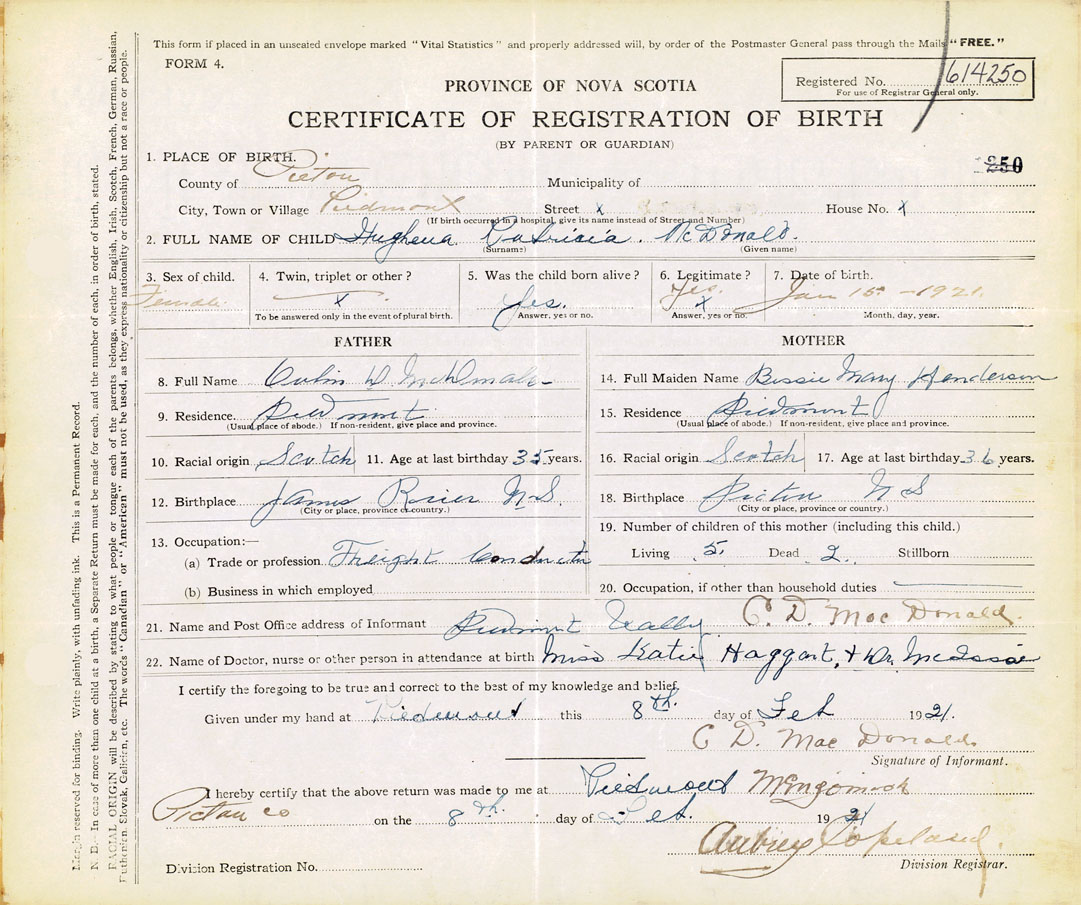 This form if placed in an unsealed envelope marked "Vital Statistics" and properly addressed will, by order of the Postmaster General pass through the Mails "FREE."
FORM 4.
Registered No. 614250
For use of Registrar General only.
PROVINCE OF NOVA SCOTIA
CERTIFICATE OF REGISTRATION OF BIRTH
(BY PARENT OR GUARDIAN)
250
1. PLACE OF BIRTH.
County of Pictou Municipality of
City, Town or Village Piedmont Street x House No. x
(If birth occurred in a hospital, give its name instead of Street and Number)
2. FULL NAME OF CHILD Hughena Patricia. McDonald.
(Surname) (Given name)
3. Sex of child. 4. Twin, triplet or other? 5. Was the child born alive? 6. Legitimate? 7. Date of birth.
Female x Yes. Yes. x Jan 15 - 1921.
To be answered only in the event of plural birth. Answer, yes or no. Answer, yes or no. Month, day, year.
FATHER MOTHER
8. Full Name D. 14. Full Maiden Name Bessie Mary Henderson
9. Residence. Piedmont 15. Residence Piedmont
(Usual place of abode.) If non-resident, give place and province. (Usual place of abode.) If non-resident, give place and province.
10. Racial origin Scotch 11. Age at last birthday 35 years. 16. Racial origin Scotch 17. Age at last birthday 36 years.
12. Birthplace James River N.S. 18. Birthplace Pictou N S
(City or place, province or country.) (City or place, province or country.)
13. Occupation:— 19. Number of children of this mother (including this child.)
(a) Trade or profession Freight Conductor Living 5. Dead 2. Stillborn
(b) Business in which employed 20. Occupation, if other than household duties
21. Name and Post Office address of Informant Piedmont Vally C. D. Mac Donald.
22. Name of Doctor, nurse or other person in attendance at birth Miss Katie Haggart, + Dr. McIssac
I certify the foregoing to be true and correct to the best of my knowledge and belief.
Given under my hand at Piedmont this 8th. day of Feb 1921.
C D. Mac Donald.
Signature of Informant.
I hereby certify that the above return was made to me at Piedmont
Pictou co on the 8th. day of Feb. 1921
Aubrey Copeland.
Division Registrar.
Division Registration No.
Margin reserved for binding. Write plainly, with unfading ink. This is a Permanent Record.
N. B. In case of more than one child at a birth, a Separate Return must be made for each, and the number of each, in order of birth, stated.
RACIAL ORIGIN will be described by stating to what people or tongue each of the parents belongs, whether English, Irish, Scotch, French, German, Russian,
Ruthenian, Slovak, Galician, etc. The words "Canadian" or "American" must not be used, as they express nationality or citizenship but not a race or people.